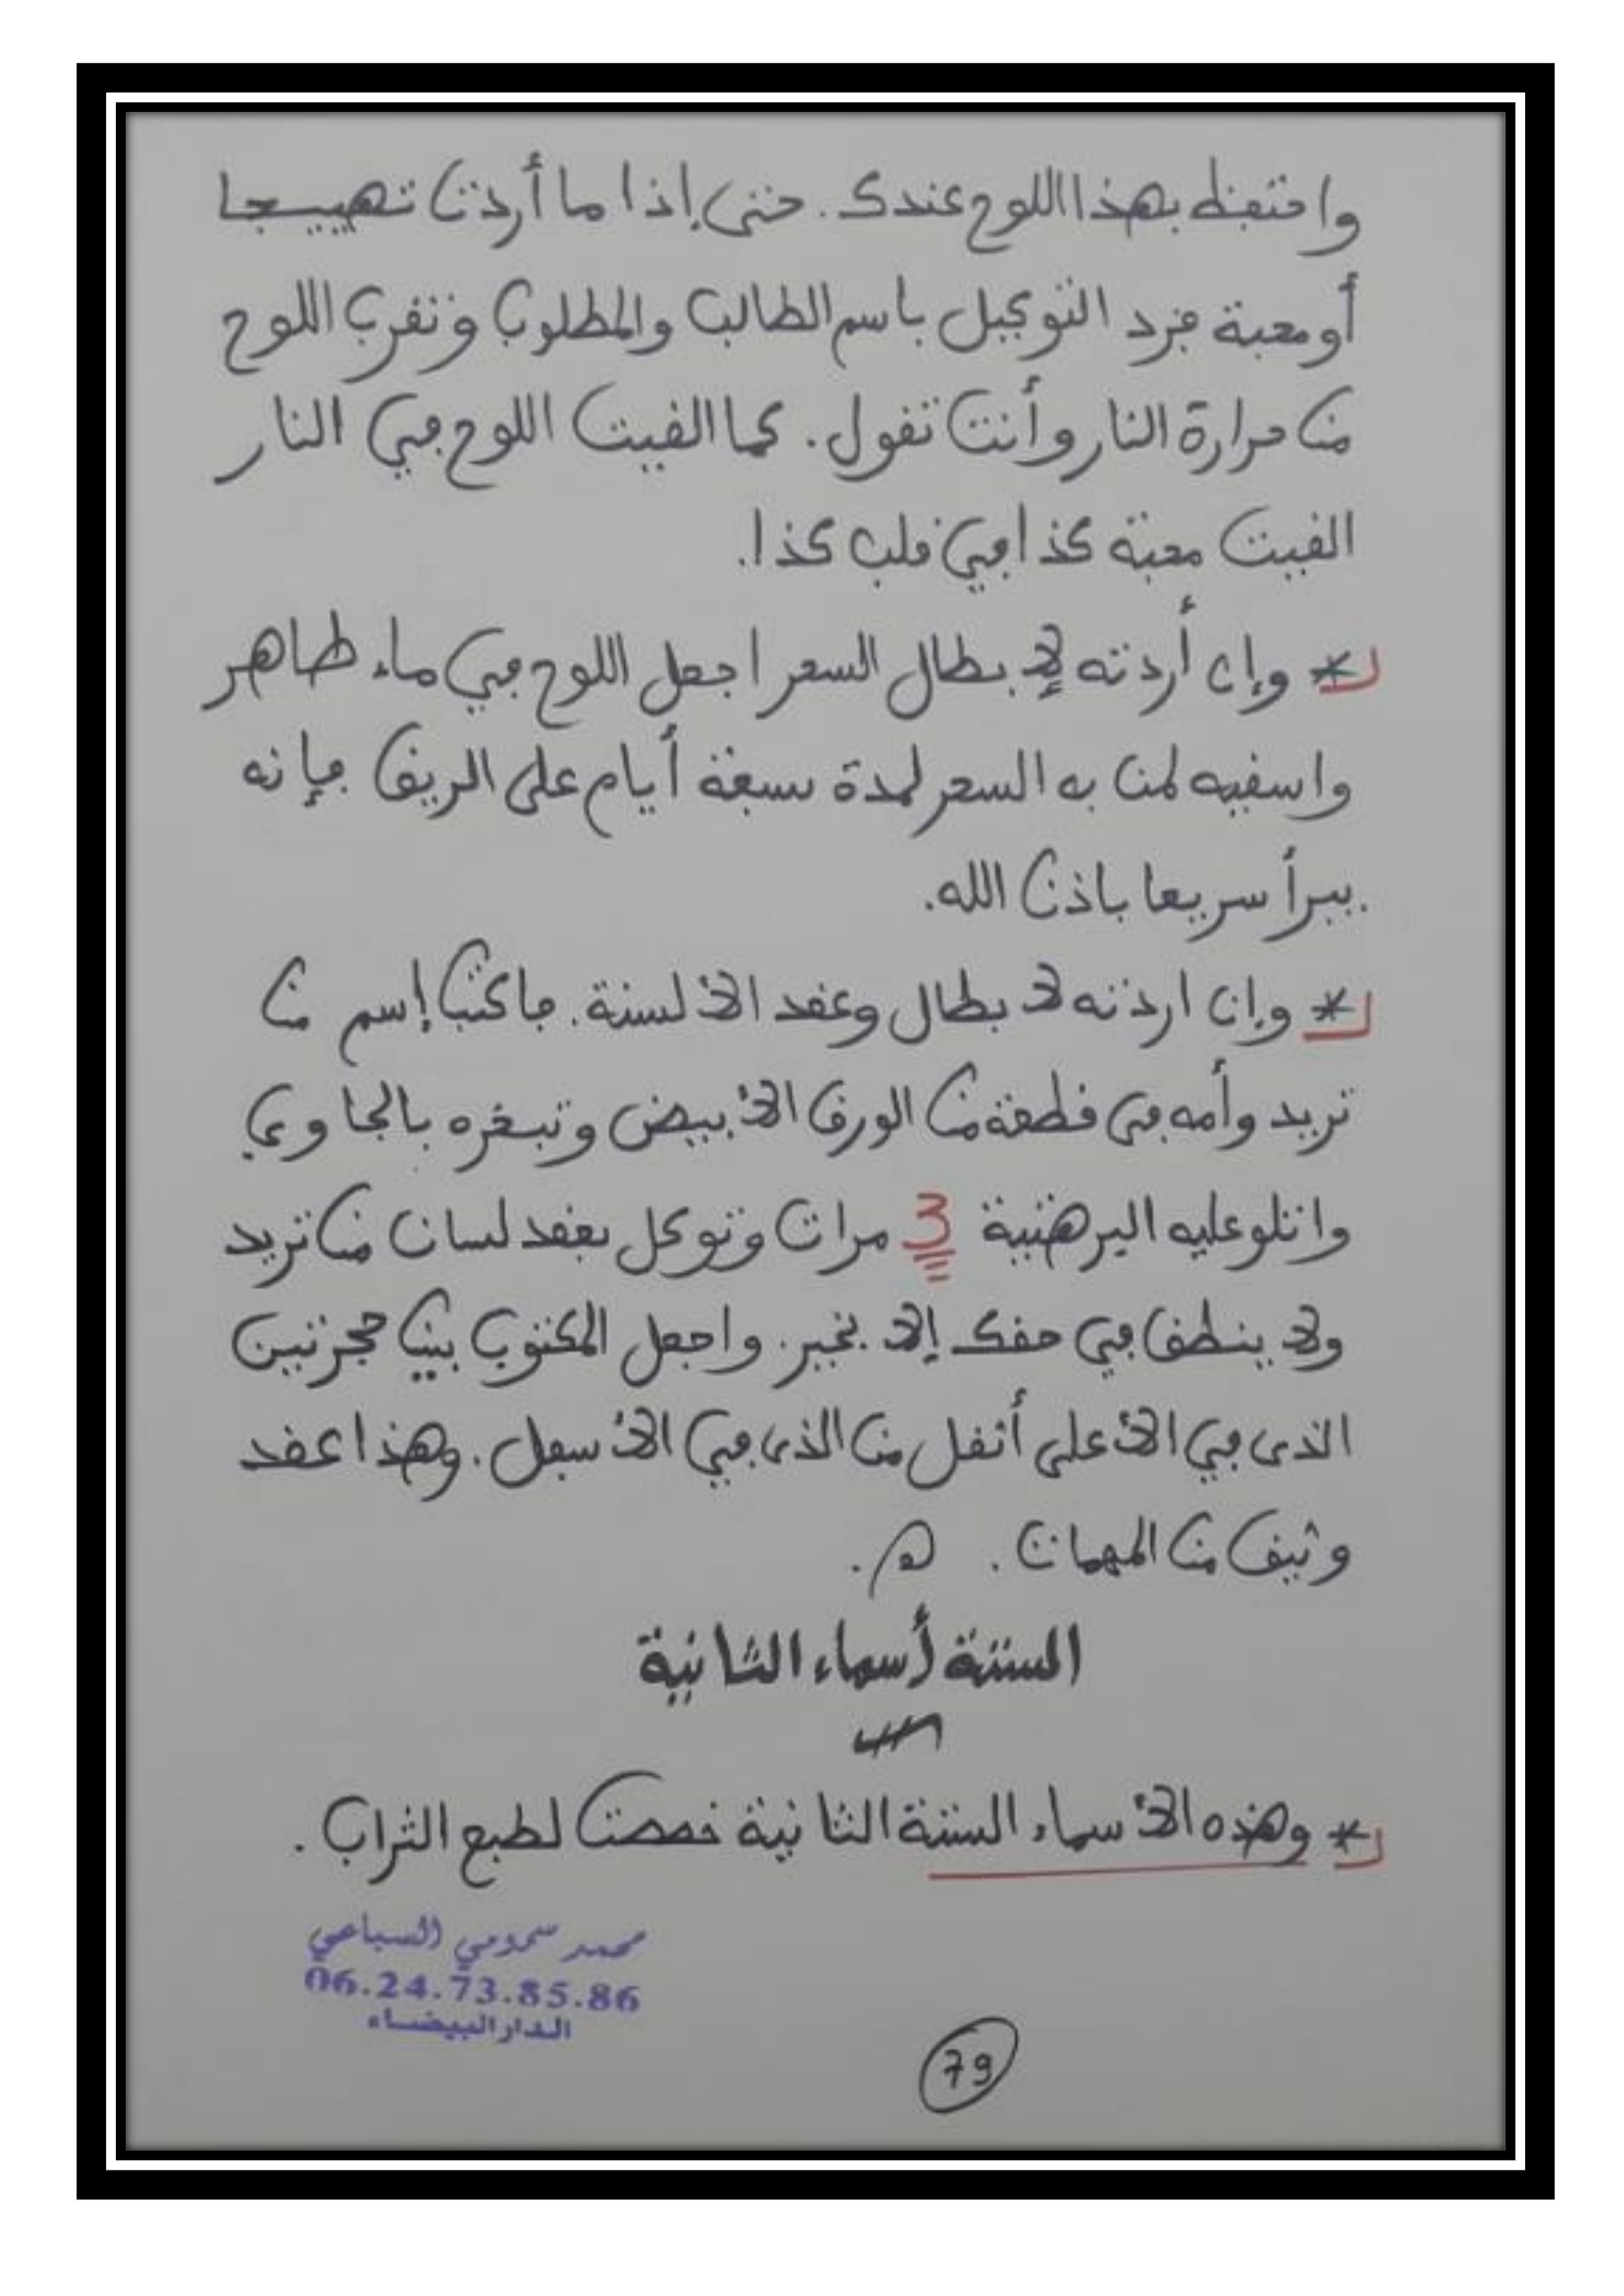 واحتفظ بهذا اللوح عندك. حتى إذا ما أردت تهييجا
أو محبة فزد التوكيل باسم الطالب والمطلوب وتقرب اللوح
من حرارة النار وأنت تقول. كما القيت اللوح في النار
القيت محبة كذا في قلب كذا.
* وإن أردته لإبطال السحر اجعل اللوح في ماء طاهر
واسقيه لمن به السحر لمدة سبعة أيام على الريق فإنه
يبرأ سريعا باذن الله.
* وإن اردته لابطال وعقد الألسنة. فاكتب إسم من
تريد وأمه في قطعة من الورق الأبيض وتبخره بالجاوي
واتلو عليه البرهتية 3 مرات وتوكل بعقد لسان من تريد
ولا ينطق في حقك إلا بخير. واجعل المكتوب بين حجرتين
الذي في الأعلى أثقل من الذي في الأسفل. وهذا عقد
وثيق من المهمات. هـ.
الستة أسماء الثانية
* وهذه الأسماء الستة الثانية خصصت لطبع التراب.
محمد سمومي السباعي
06.24.73.85.86
الدار البيضاء
79